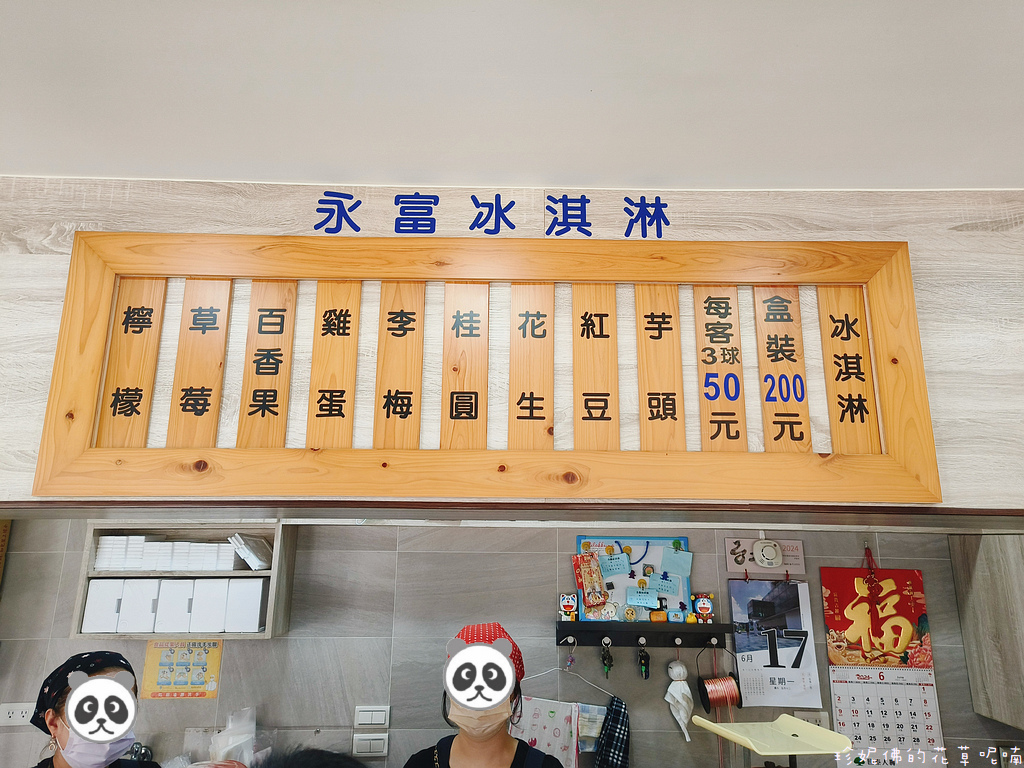 永富冰淇淋
冰淇淋
盒裝
200
元
每客
3球
50
元
芋頭
紅豆
花生
桂圓
李梅
雞蛋
百香果
草莓
檸檬
2024
17
6月
星期一
福
2024 6
珍妮佛的花草呢喃